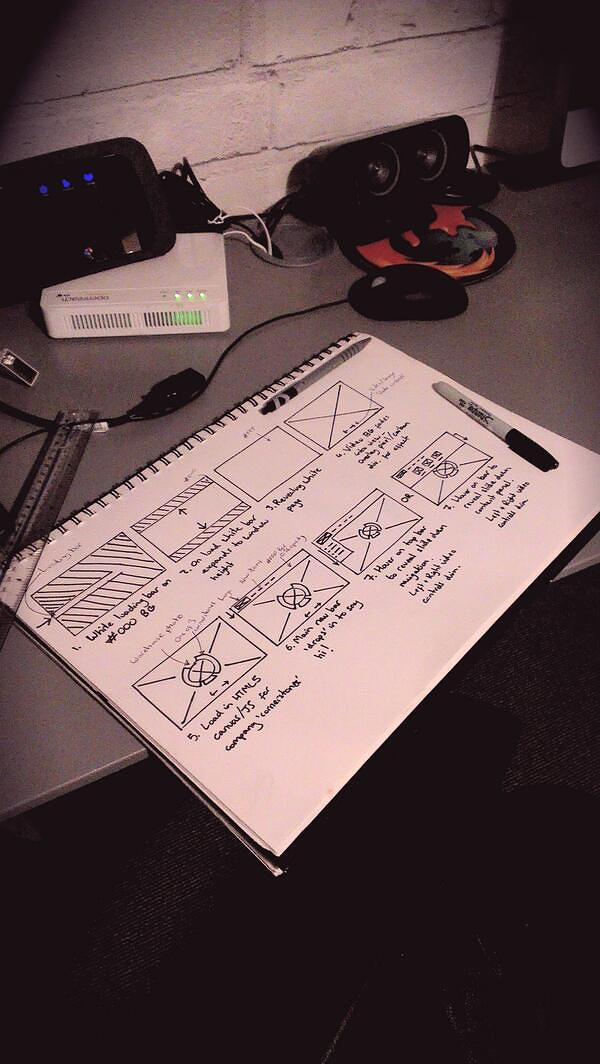 openreach
Loading bar
1. White loading bar on
#000 BG
2. On load white bar
expands to window
height
#FFF
3. Revealing white
page
4. Video BG fades
into view.
Overlay
for effect
Warehouse photo
5. Load in HTML5
canvas/JS for
company 'cornerstones'
6. Main nav bar
'drops' in to say
hi!
7. Hover on top bar
to reveal slide down
navigation.
Left + Right video
controls dim.
OR
7. Hover on bar to
reveal slide down
content panel.
Left + Right video
controls dim.